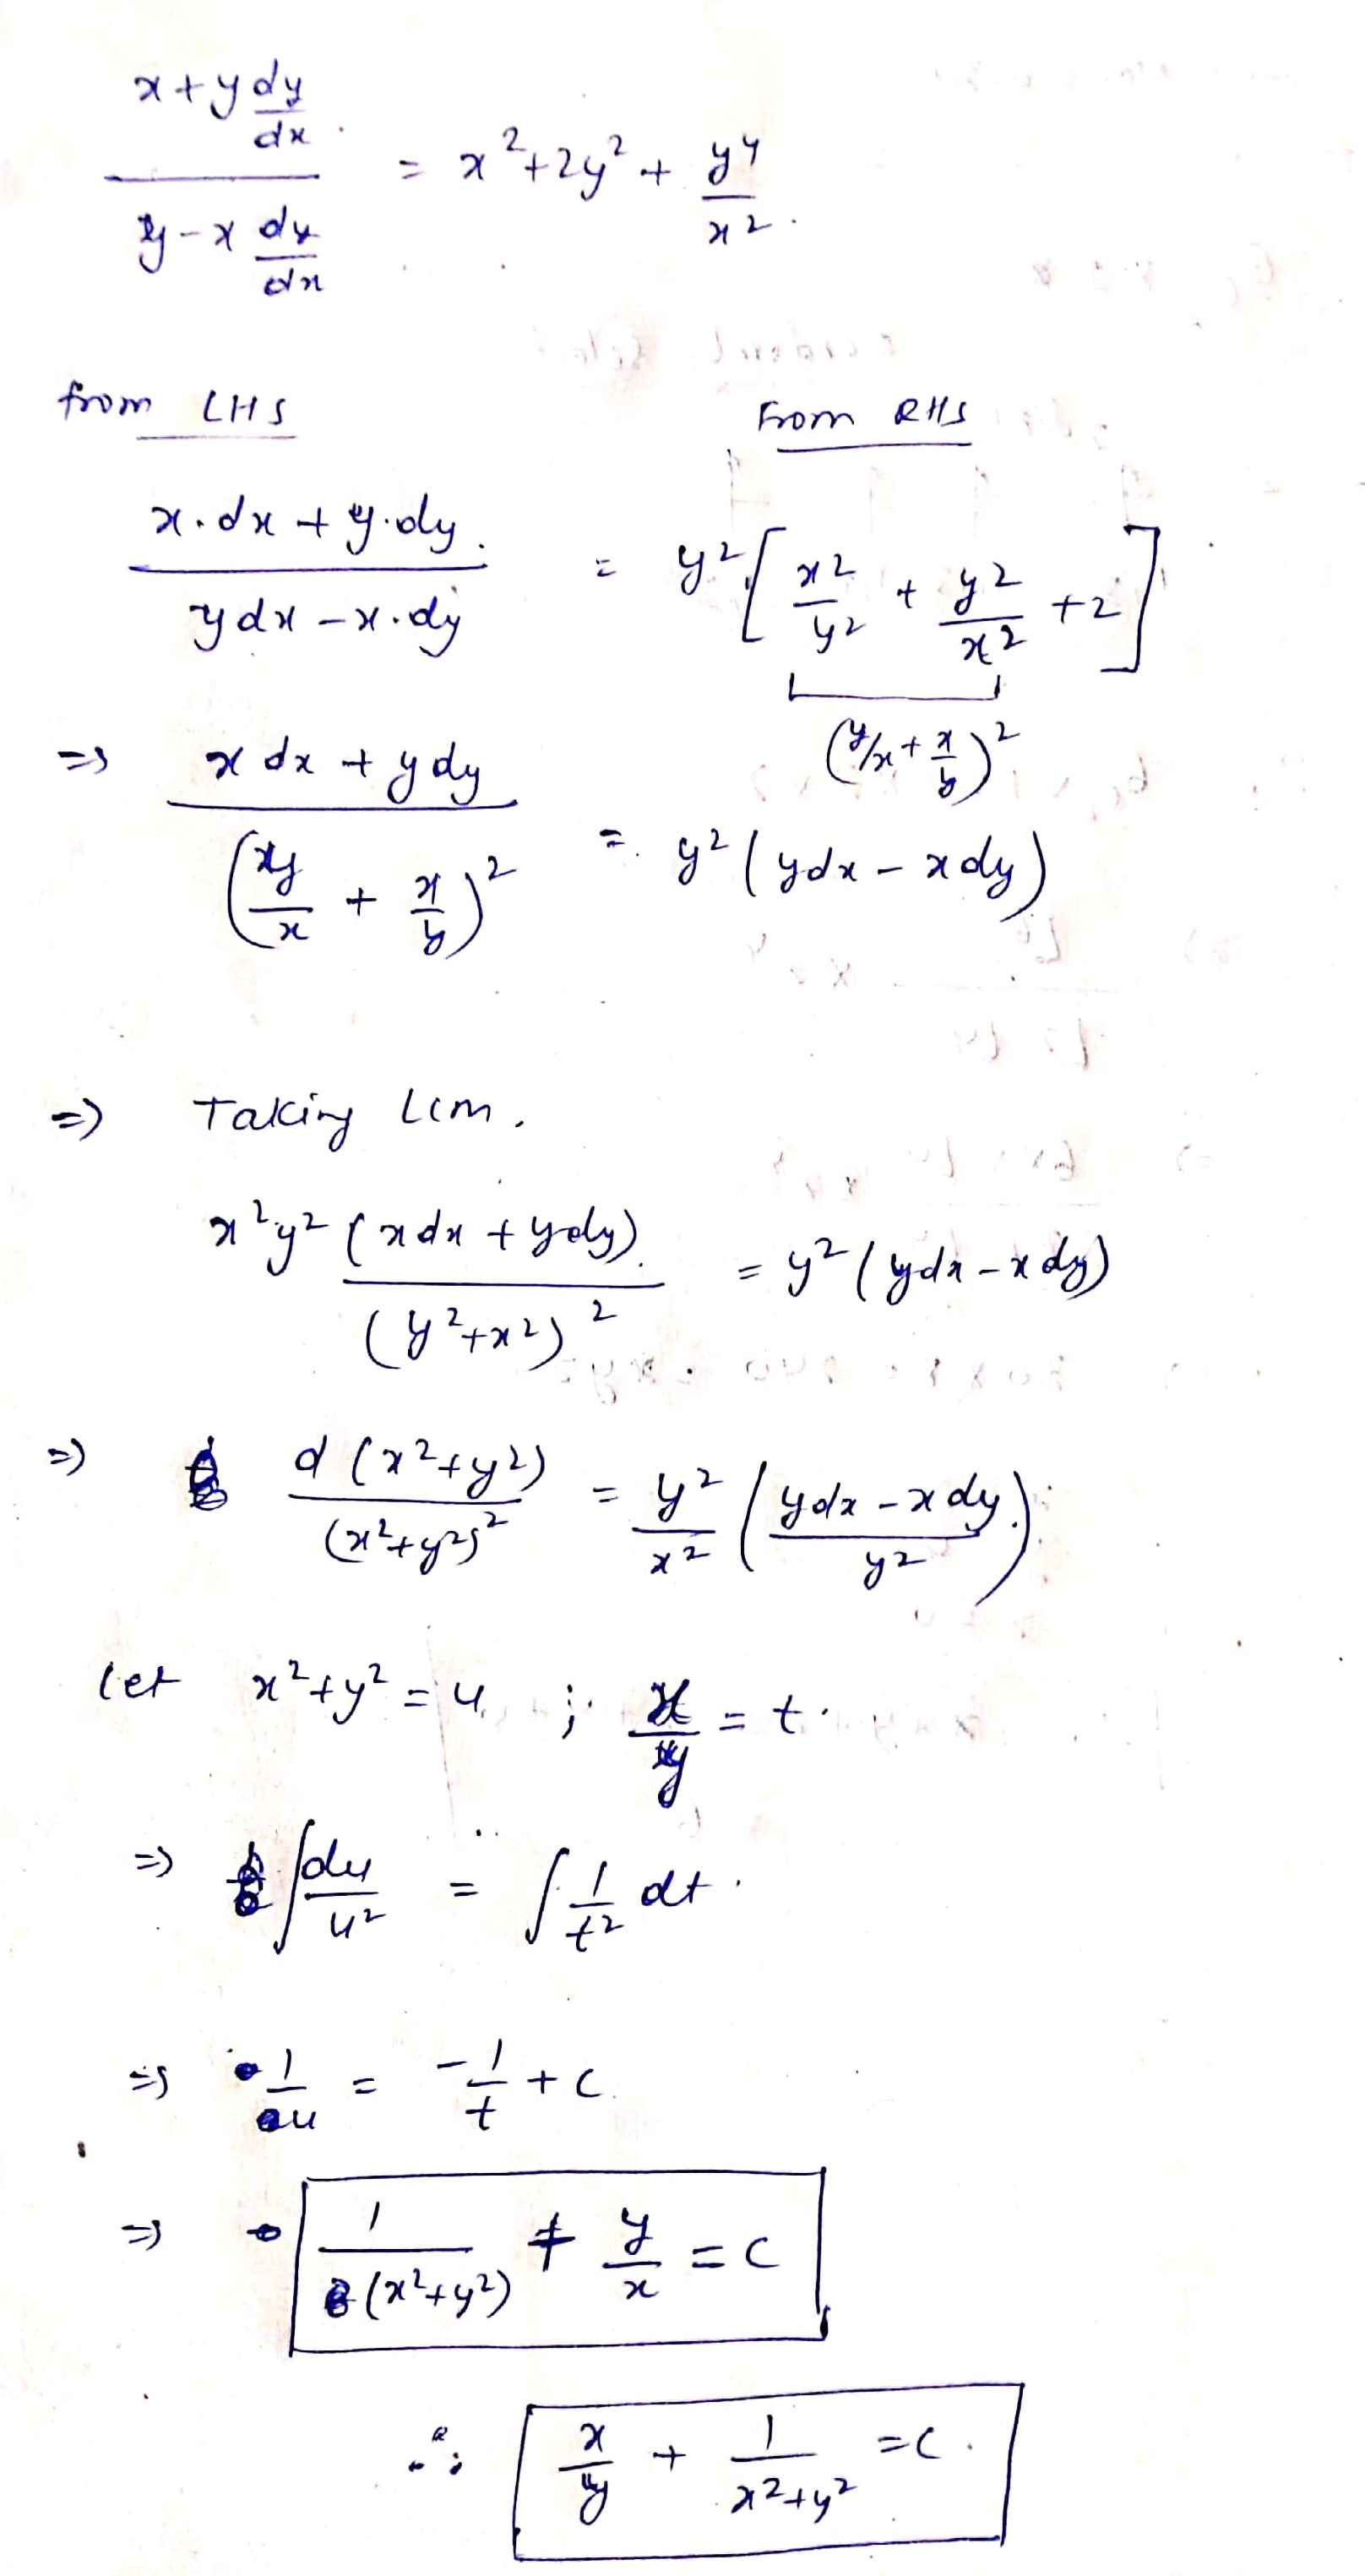 (x + y dy/dx) / (y - x dy/dx) = x² + 2y² + y⁴/x².
from LHS From RHS
(x.dx + y.dy) / (ydx - x.dy) = y² [x²/y² + y²/x² + 2]
(y/x + x/y)²
⇒ (x dx + y dy) / (y/x + x/y)² = y² (ydx - xdy)
⇒ Taking LCM,
x²y² (xdx + ydy) / (y² + x²)² = y² (ydx - xdy)
⇒ d(x² + y²) / (x² + y²)² = y²/x² ((ydx - xdy) / y²)
let x² + y² = u ; x/y = t.
⇒ ∫ du/u² = ∫ 1/t² dt.
⇒ 1/u = -1/t + c
⇒ 1/(x² + y²) + y/x = c
∴ x/y + 1/(x² + y²) = c.